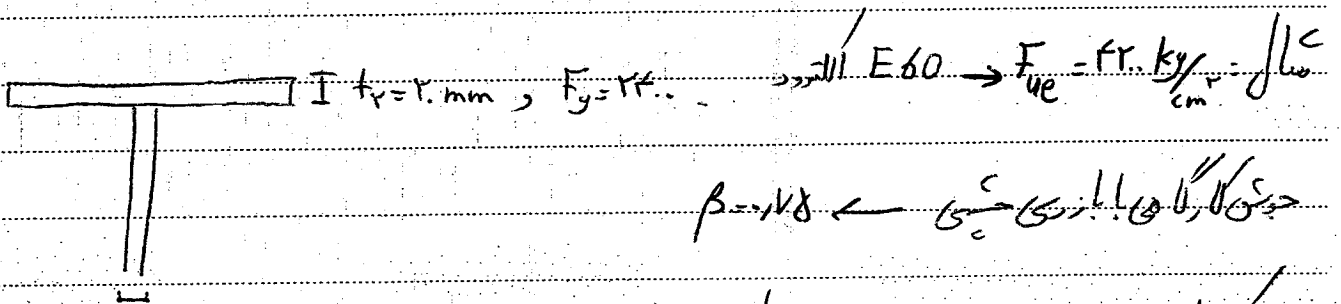 مثال = الکترود E60 → Fue = ۴۲۰۰ kg/cm² t۲ = ۲۰ mm , Fy = ۲۴۰۰
جوش کارگاهی با بازرسی چشمی ← β = ۰,۷۵